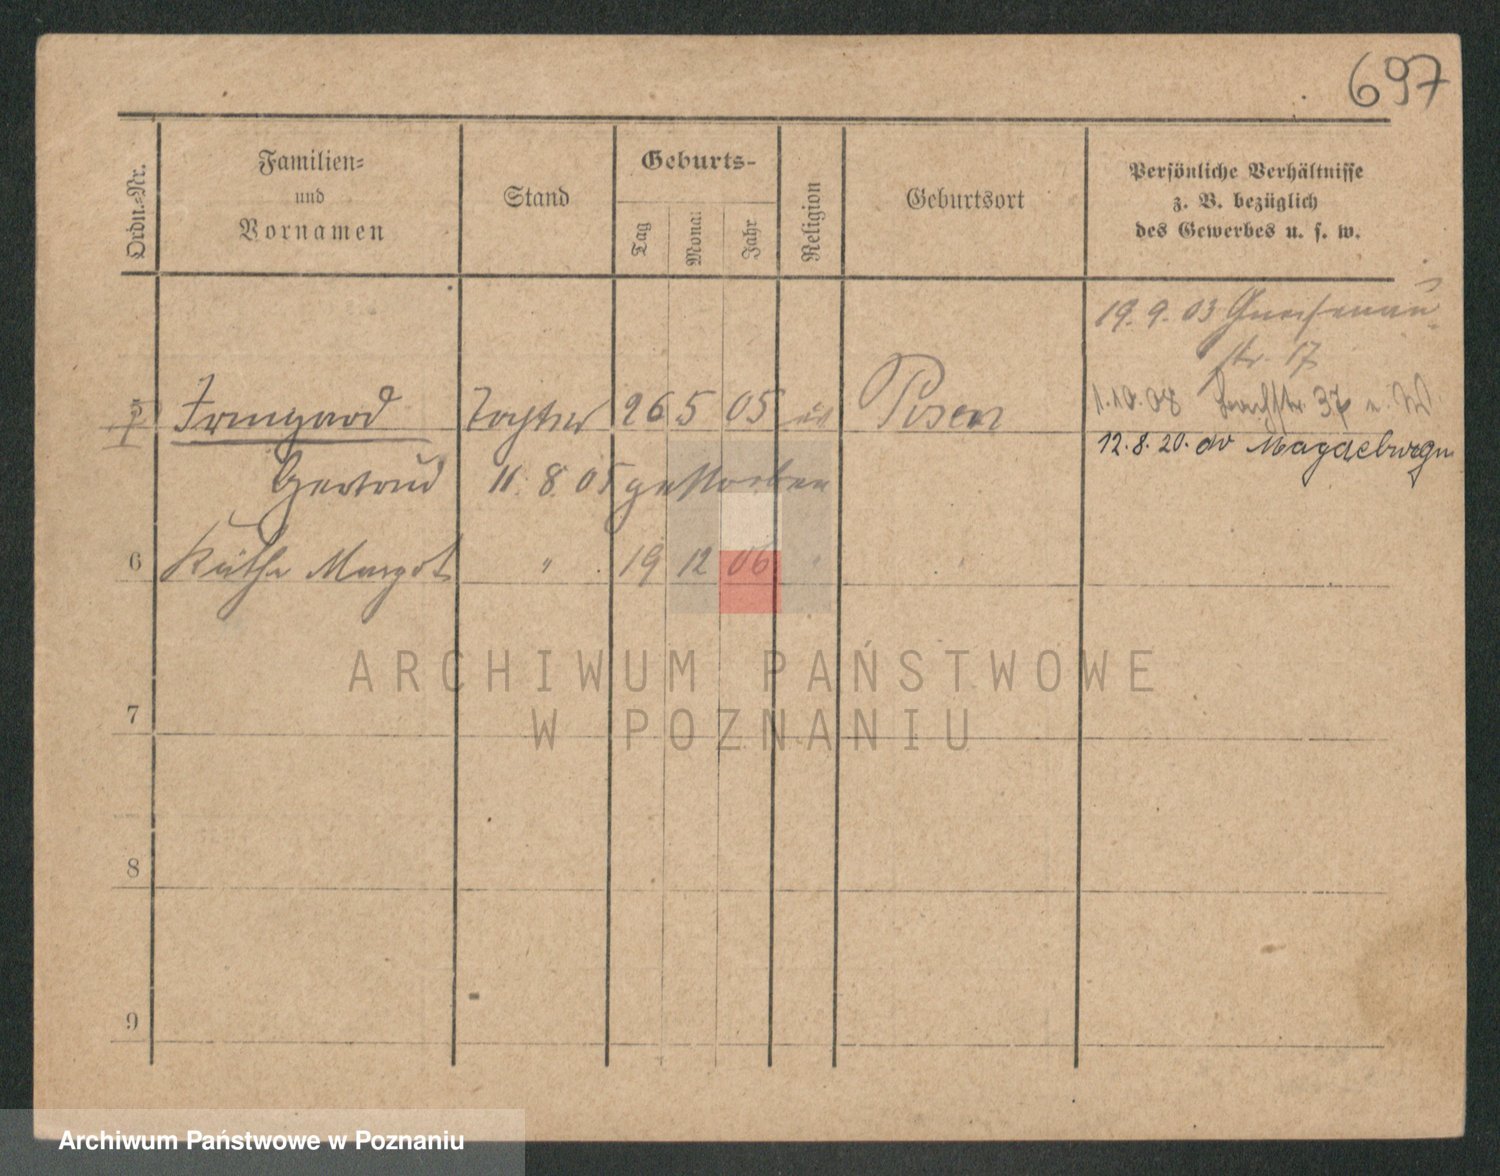 697
Ordn.-Nr.
Familien-
und
Vornamen
Stand
Geburts-
Tag
Monat
Jahr
Religion
Geburtsort
Persönliche Verhältnisse
z. B. bezüglich
des Gewerbes u. s. w.
19. 9. 03 Gneisenau-
str. 17
5 Irmgard Tochter 26 5 05 Posen 1.10.08 37
12. 8. 20. Magdeburg
Gertrud 11. 8. 05 gestorben
6 Käthe Margot " 19 12 06 "
7
8
9
ARCHIWUM PAŃSTWOWE
W POZNANIU
Archiwum Państwowe w Poznaniu